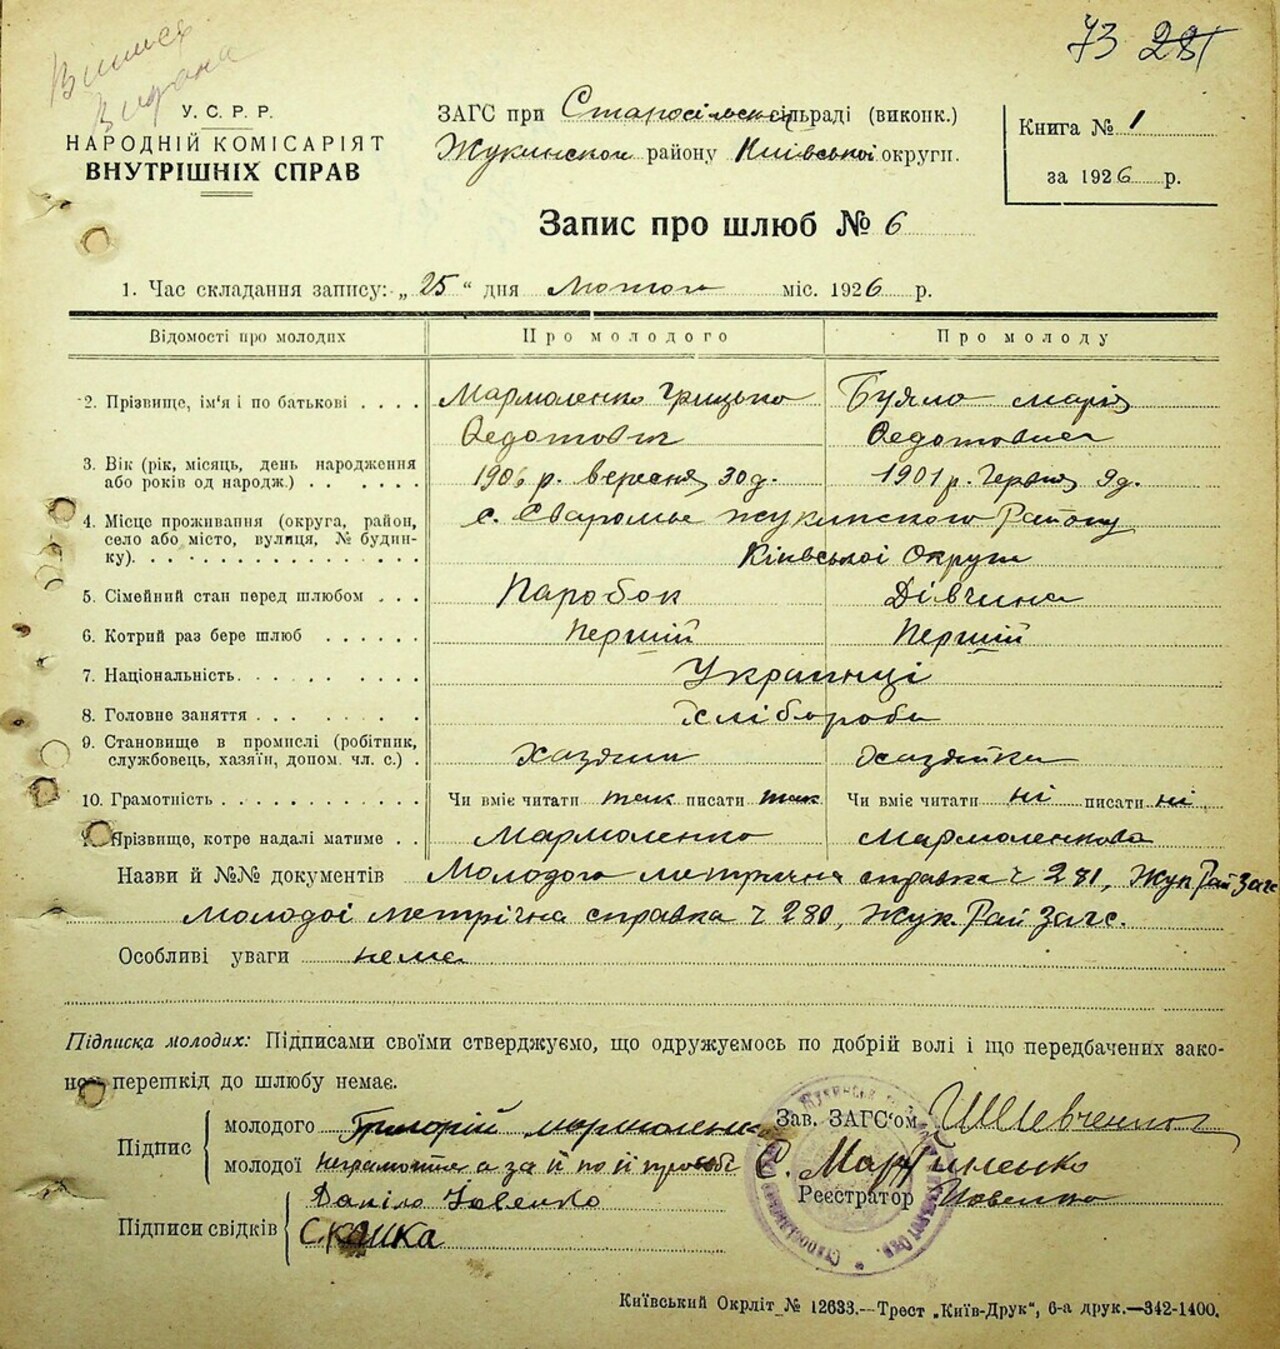 Випись
Видана
73 281
У. С. Р. Р.
НАРОДНІЙ КОМІСАРІЯТ
ВНУТРІШНІХ СПРАВ
ЗАГС при Старосільській сільраді (виконк.)
Жукинского району Київської округи.
Книга № 1
за 1926 р.
Запис про шлюб № 6
1. Час складання запису: „ 25 “ дня Лютого міс. 1926 р.
Відомості про молодих Про молодого Про молоду
2. Прізвище, ім'я і по батькові Мармоленко Грицько Буяло Марія
Федотович Федотовна
3. Вік (рік, місяць, день народження
або років од народж.) 1906 р. вересня 30 д. 1901 р. Червня 9 д.
4. Місце проживання (округа, район,
село або місто, вулиця, № будин-
ку). с. Сваромье Жукинского Району
Київської Округи
5. Сімейний стан перед шлюбом Паробок Дівчина
6. Котрий раз бере шлюб Перший Перший
7. Національність Українці
8. Головне заняття Хлібороби
9. Становище в промислі (робітник,
службовець, хазяїн, допом. чл. с.) Хазяин Хазяйка
10. Грамотність Чи вміє читати так писати так Чи вміє читати ні писати ні
Прізвище, котре надалі матиме Мармоленко Мармоленкова
Назви й №№ документів Молодого метрична справка ч 281, Жук Рай Загс
Молодоі метрічна справка ч 280, Жук. Рай Загс.
Особливі уваги нема
Підписка молодих: Підписами своїми стверджуємо, що одружуємось по добрій волі і що передбачених зако-
ном перешкід до шлюбу немає.
Підпис молодого Григорій Мармоленко Зав. ЗАГС'ом Шевченко
молодої неграмотна а за й по її прозьбі С. Мартиленко
Реєстратор Иовенко
Підписи свідків Даніло Іовенко
Скашка
Київський Окрліт № 12633.—Трест „Київ-Друк“, 6-а друк.—342-1400.